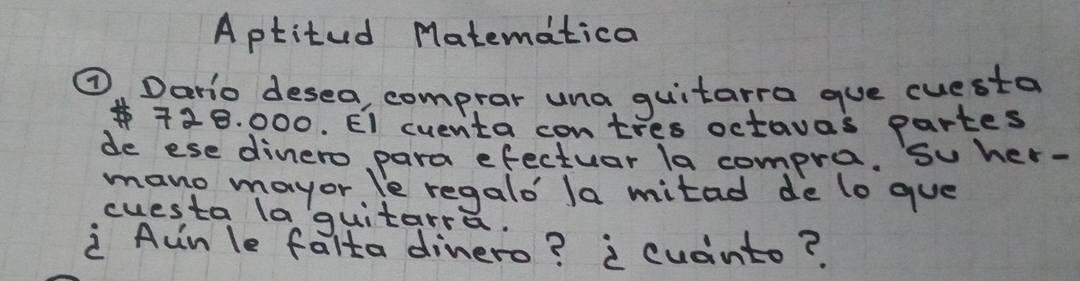 Aptitud Matemática
① Darío desea comprar una guitarra que cuesta
$ 728.000. Él cuenta con tres octavas partes
de ese dinero para efectuar la compra. Su her-
mano mayor le regaló la mitad de lo que
cuesta la guitarra.
¿ Aún le falta dinero? ¿ cuánto?